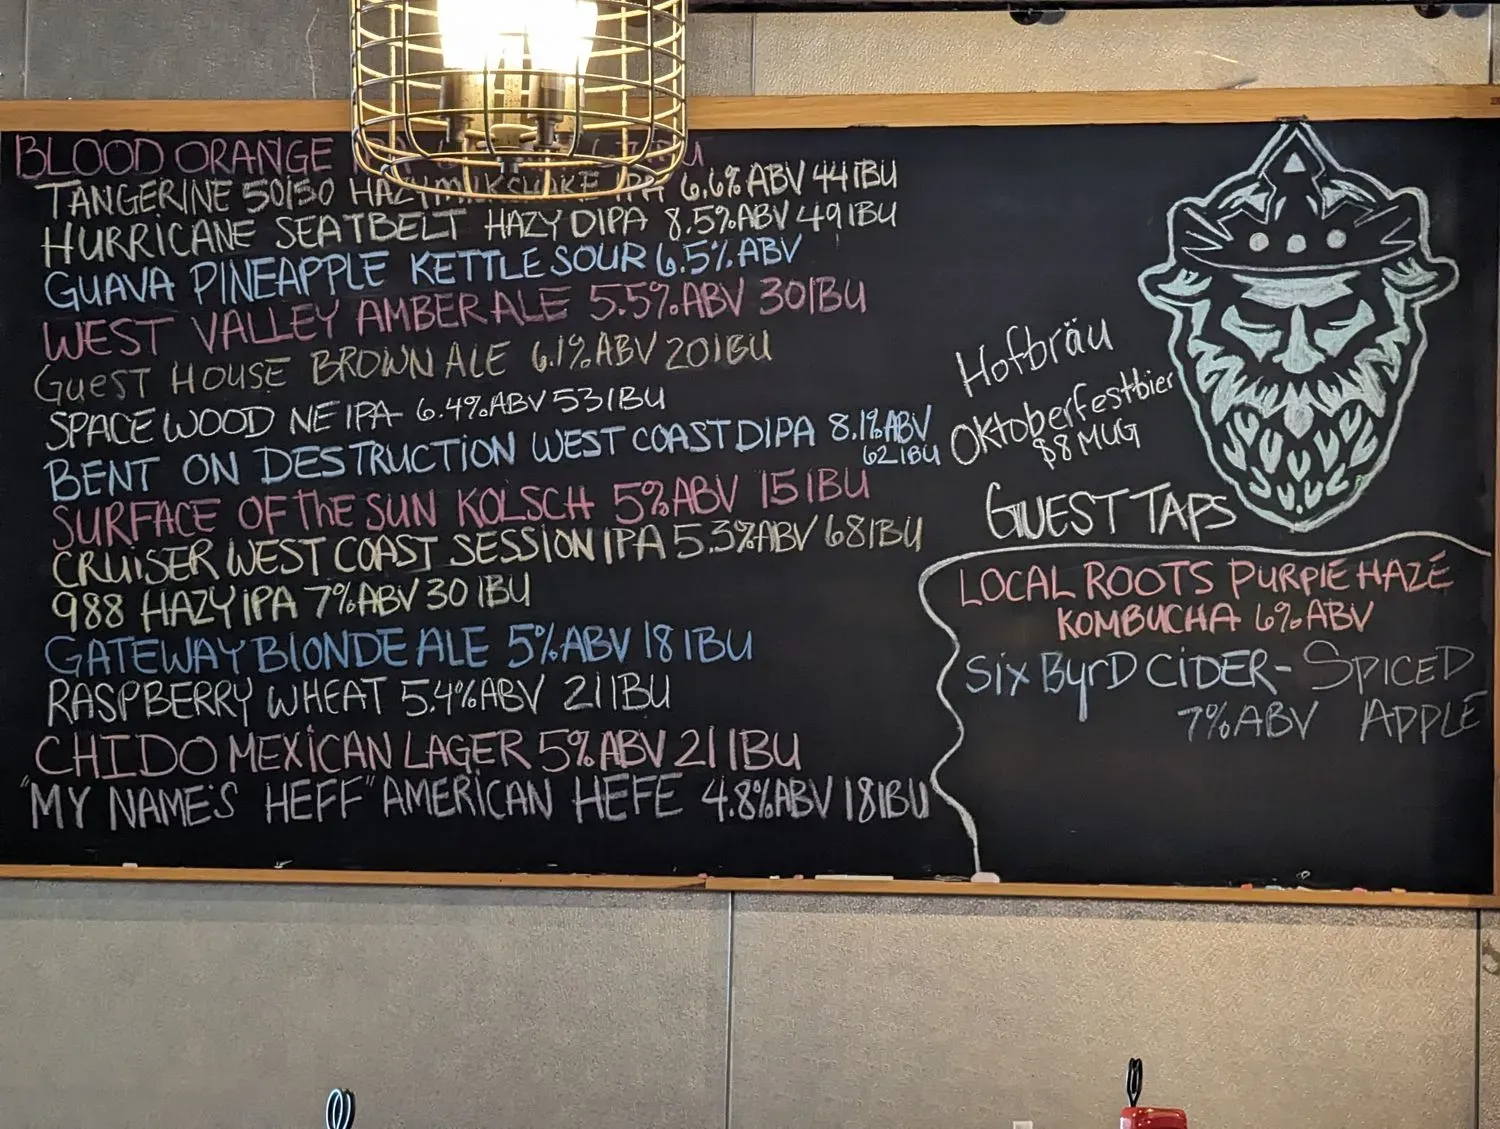 BLOOD ORANGE
TANGERINE 50/50 HAZY MILKSHAKE IPA 6.6% ABV 44 IBU
HURRICANE SEATBELT HAZY DIPA 8.5% ABV 49 IBU
GUAVA PINEAPPLE KETTLE SOUR 6.5% ABV
WEST VALLEY AMBER ALE 5.5% ABV 30 IBU
GUEST HOUSE BROWN ALE 6.1% ABV 20 IBU
SPACE WOOD NE IPA 6.4% ABV 53 IBU
BENT ON DESTRUCTION WEST COAST DIPA 8.1% ABV
62 IBU
SURFACE OF the SUN KOLSCH 5% ABV 15 IBU
CRUiSER WEST COAST SESSION IPA 5.3% ABV 68 IBU
988 HAZY iPA 7% ABV 30 IBU
GATEWAY BLONDE ALE 5% ABV 18 IBU
RASPBERRY WHEAT 5.4% ABV 21 IBU
CHIDO MEXiCAN LAGER 5% ABV 21 IBU
"MY NAME'S HEFF" AMERiCAN HEFE 4.8% ABV 18 IBU
Hofbräu
Oktoberfestbier
$8 MUG
GUEST TAPS
LOCAL ROOTS PURPlE HAZE
KOMBUCHA 6% ABV
Six ByrD CiDER - SPICED
7% ABV APPLE